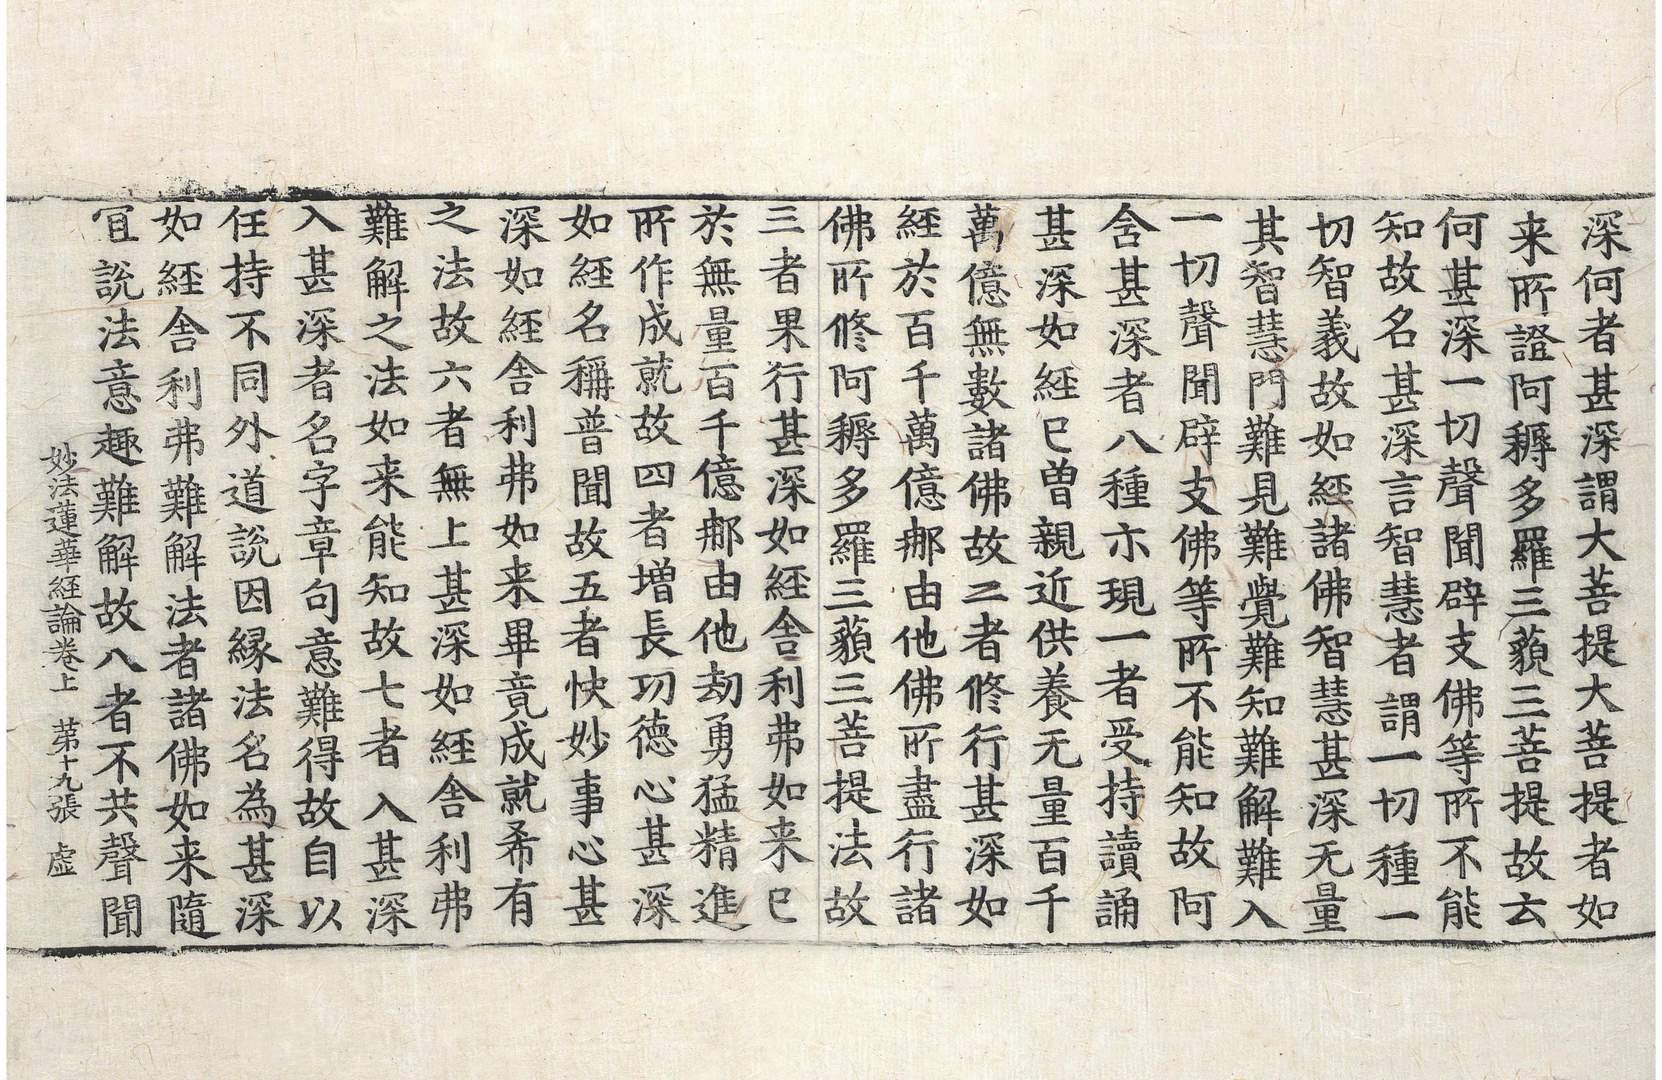 深何者甚深謂大菩提大菩提者如
来所證阿耨多羅三藐三菩提故云
何甚深一切聲聞辟支佛等所不能
知故名甚深言智慧者謂一切種一
切智義故如經諸佛智慧甚深无量
其智慧門難見難覺難知難解難入
一切聲聞辟支佛等所不能知故阿
含甚深者八種示現一者受持讀誦
甚深如經已曾親近供養无量百千
萬億無數諸佛故二者修行甚深如
經於百千萬億那由他佛所盡行諸
佛所修阿耨多羅三藐三菩提法故
三者果行甚深如經舍利弗如来已
於無量百千億那由他劫勇猛精進
所作成就故四者增長功德心甚深
如經名稱普聞故五者快妙事心甚
深如經舍利弗如来畢竟成就希有
之法故六者無上甚深如經舍利弗
難解之法如来能知故七者入甚深
入甚深者名字章句意難得故自以
住持不同外道說因緣法名為甚深
如經舍利弗難解法者諸佛如来隨
冝說法意趣難解故八者不共聲聞
妙法蓮華經論卷上 第十九張 虛